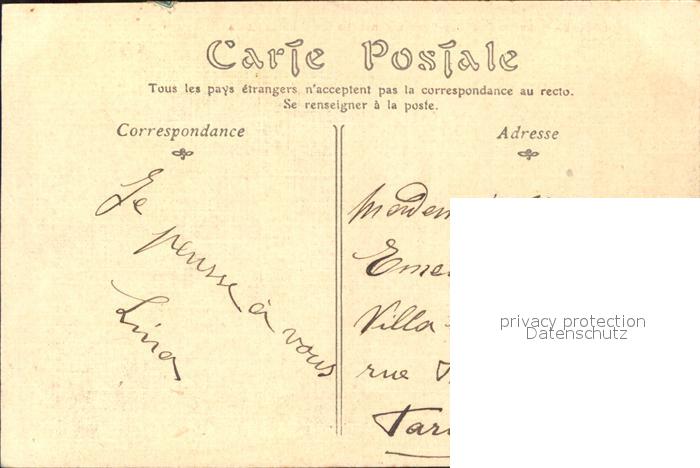 Carte Postale
Tous les pays étrangers n'acceptent pas la correspondance au recto.
Se renseigner à la poste.
Correspondance
Adresse
Je
pense à vous
Lina
Villa
rue
privacy protection
Datenschutz